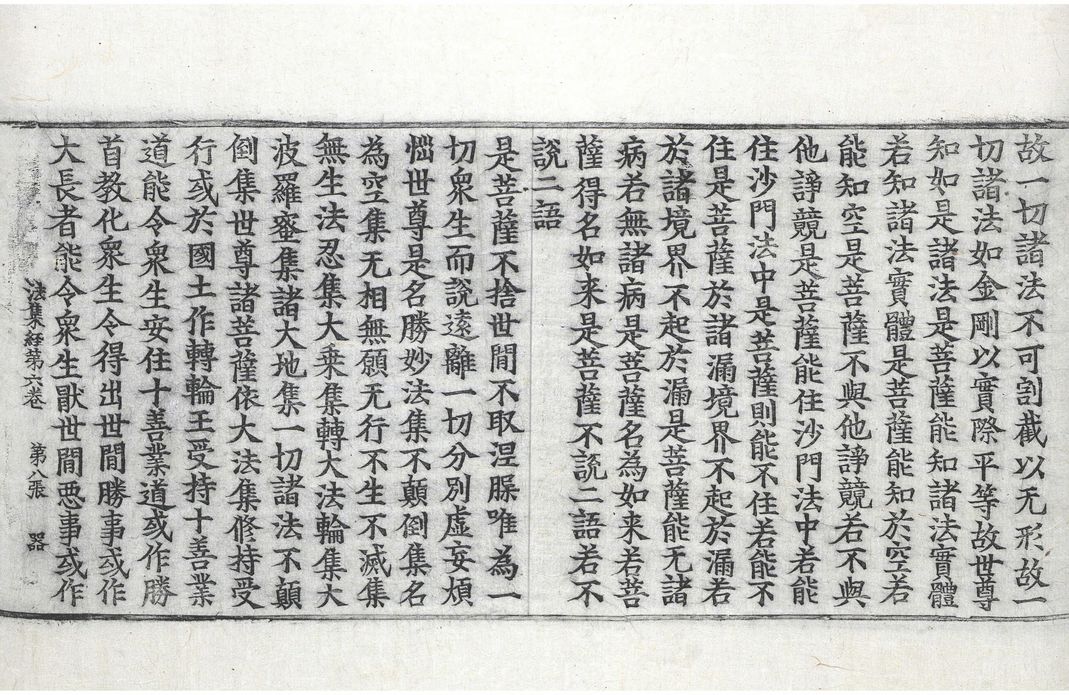 故一切諸法不可割截以无形故一
切諸法如金剛以實際平等故世尊
知如是諸法是菩薩能知諸法實體
若知諸法實體是菩薩能知於空若
能知空是菩薩不與他諍競若不與
他諍競是菩薩能住沙門法中若能
住沙門法中是菩薩則能不住若能不
住是菩薩於諸漏境界不起於漏若
於諸境界不起於漏是菩薩能无諸
病若無諸病是菩薩名為如来若菩
薩得名如来是菩薩不說二語若不
說二語
是菩薩不捨世間不取涅槃唯為一
切衆生而說遠離一切分別虛妄煩
惱世尊是名勝妙法集不顛倒集名
為空集无相無願无行不生不滅集
無生法忍集大乗集轉大法輪集大
波羅蜜集諸大地集一切諸法不顛
倒集世尊諸菩薩依大法集修持受
行或於國土作轉輪王受持十善業
道能令衆生安住十善業道或作勝
首教化衆生令得出世間勝事或作
大長者能令衆生猒世間惡事或作
法集經第六卷 第八張 器